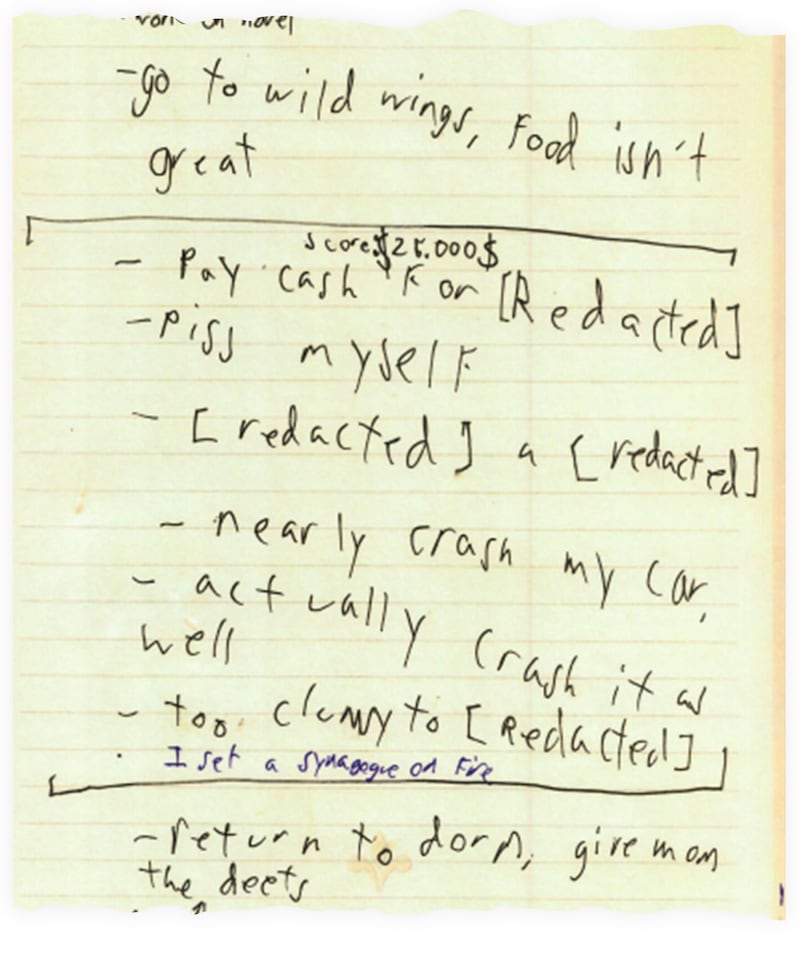 -go to wild wings, Food isn't
great
score $25.000$
- Pay cash For [Redacted]
-Piss myself
- [redacted] a [redacted]
- nearly crash my car,
- actually crash it as
well
- too clumsy to [Redacted]
I set a synagogue on Fire
-return to dorm, give mom
the deets